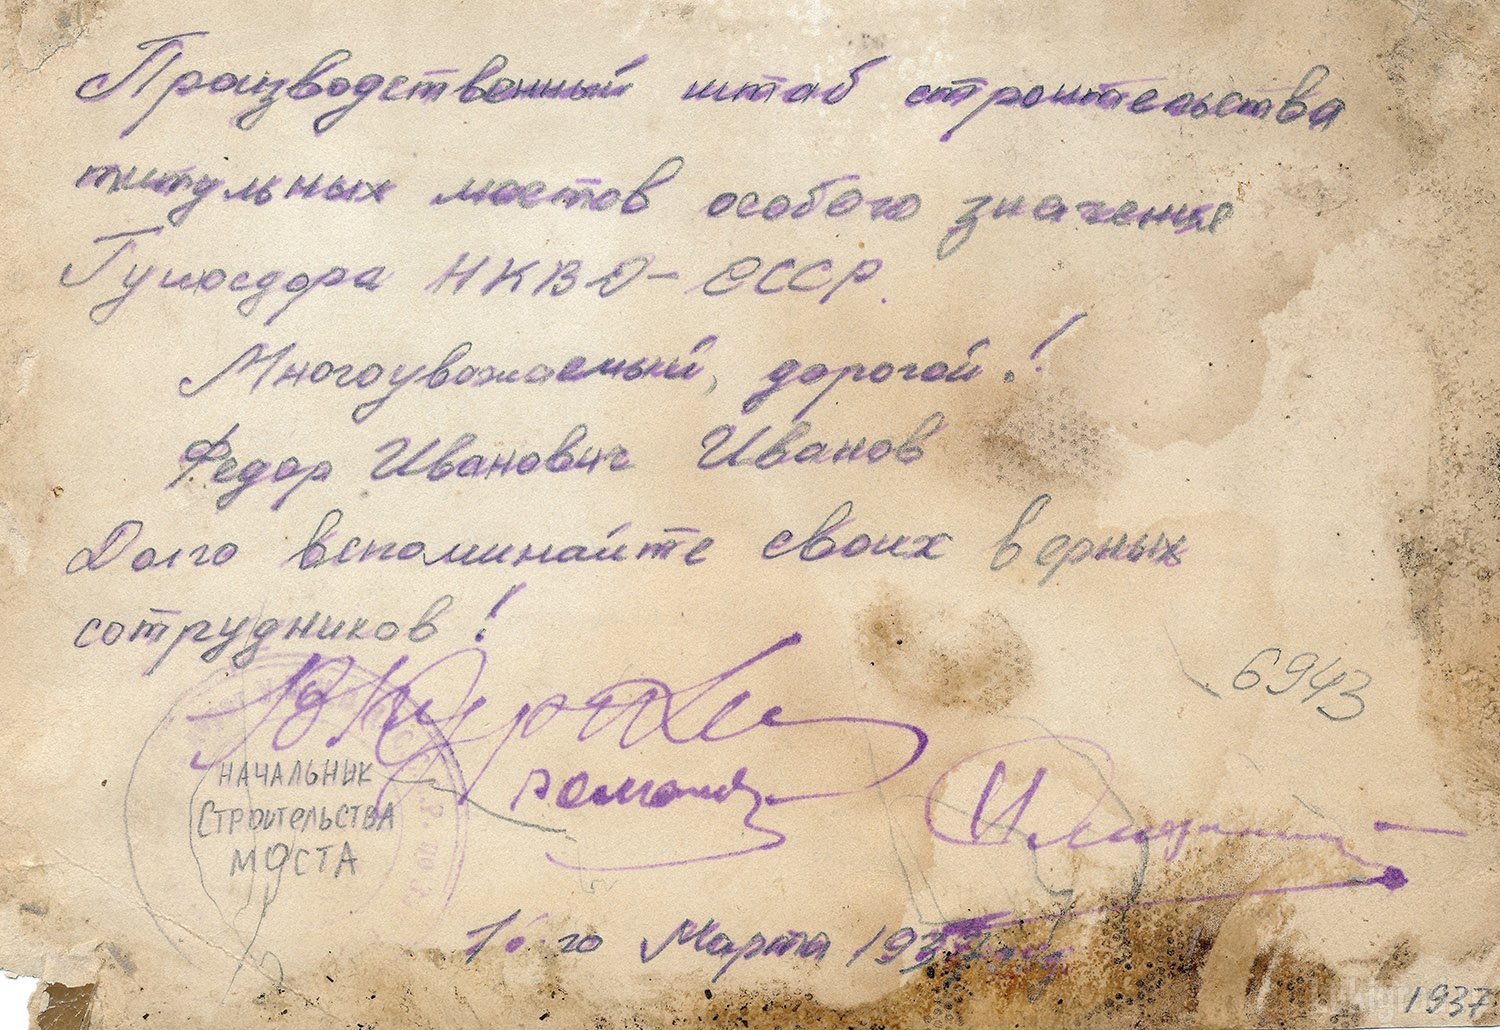 Производственный штаб строительства
титульных мостов особого значения
Гушосдора НКВД-СССР.
Многоуважаемый, дорогой!
Федор Иванович Иванов
Долго вспоминайте своих верных
сотрудников!
6943
НАЧАЛЬНИК
СТРОИТЕЛЬСТВА
МОСТА
го Марта 1937
1937